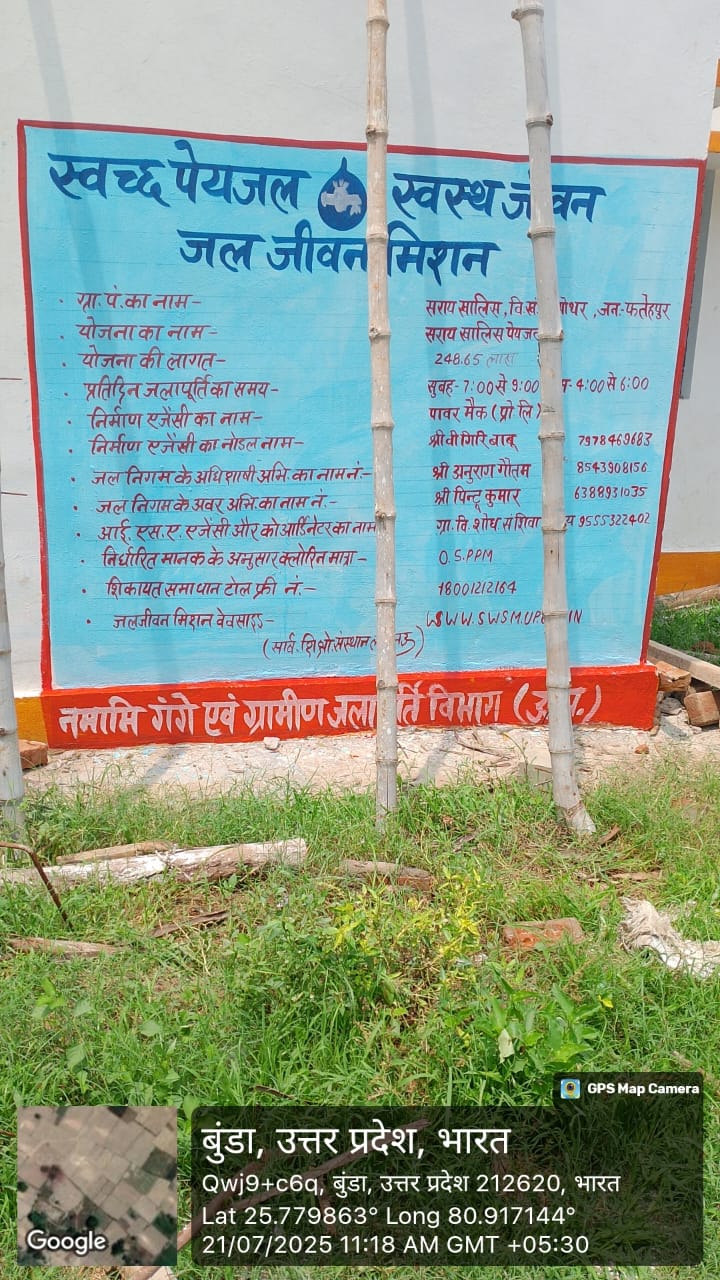 स्वच्छ पेयजल स्वस्थ जीवन
जल जीवन मिशन
ग्रा. पं. का नाम - सराय खालिस, वि.खं. पोथर, जन:- फतेहपुर
योजना का नाम - सराय खालिस पेयजल
योजना की लागत - 248.65 लाख
प्रतिदिन जलापूर्ति का समय - सुबह - 7:00 से 9:00 - 4:00 से 6:00
निर्माण एजेंसी का नाम - पावर मैक (प्रो लि)
निर्माण एजेंसी का नोडल नाम - श्री वी गिरि बाबू 7978469683
जल निगम के अधिशाषी अभि. का नाम नं:- श्री अनुराग गौतम 8543908156
जल निगम के अवर अभि. का नाम नं. - श्री पिन्टू कुमार 6388931035
आई. एस. ए. एजेंसी और को आर्डिनेटर का नाम ग्रा. वि. शोध सं शिवा 9555322402
निर्धारित मानक के अनुसार क्लोरिन मात्रा - 0.5.PPM
शिकायत समाधान टोल फ्री नं. :- 18001212164
जलजीवन मिशन वेवसाइड - WWW.SWSM.UP IN
नमामि गंगे एवं ग्रामीण जलापूर्ति विभाग (उ.प्र.)
GPS Map Camera
बुंडा, उत्तर प्रदेश, भारत
Qwj9+c6q, बुंडा, उत्तर प्रदेश 212620, भारत
Lat 25.779863° Long 80.917144°
21/07/2025 11:18 AM GMT +05:30
Google